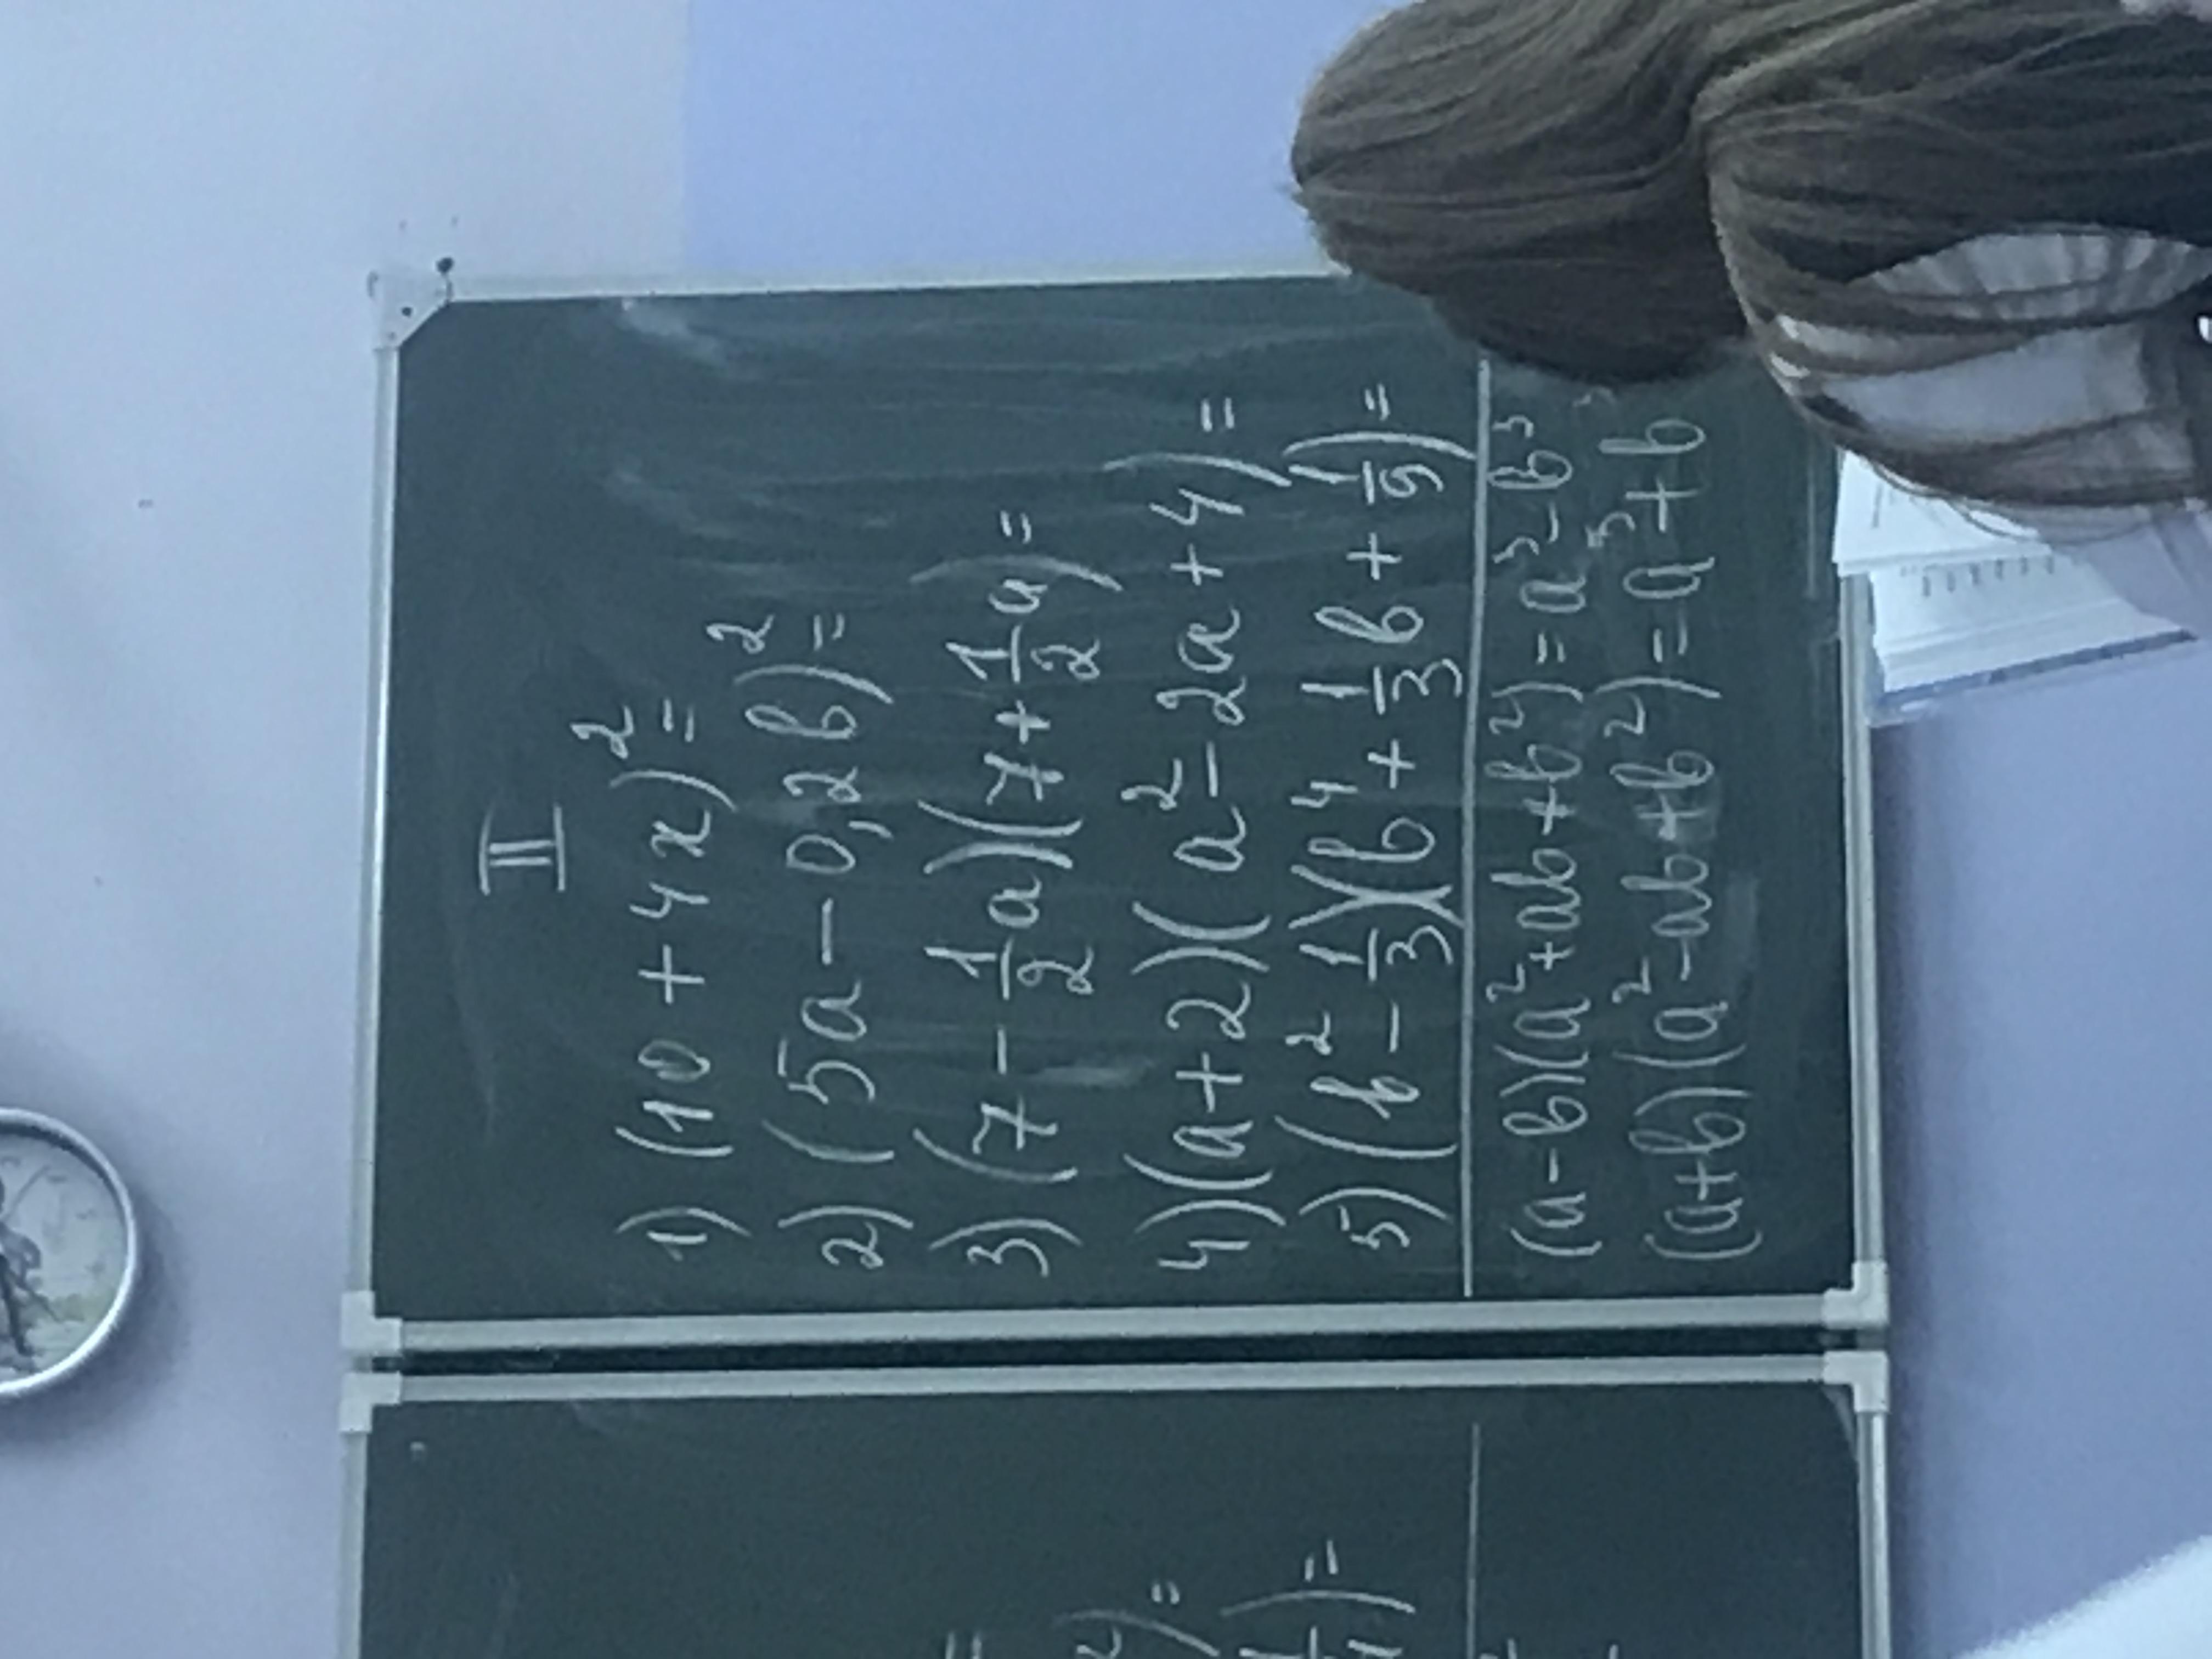 II
1) (10 + 4x)² =
2) (5a - 0,2b)² =
3) (7 - 1/2 a)(7 + 1/2 a) =
4) (a + 2)(a² - 2a + 4) =
5) (b² - 1/3)(b⁴ + 1/3 b + 1/9) =
(a - b)(a² + ab + b²) = a³ - b³
(a + b)(a² - ab + b²) = a³ + b³